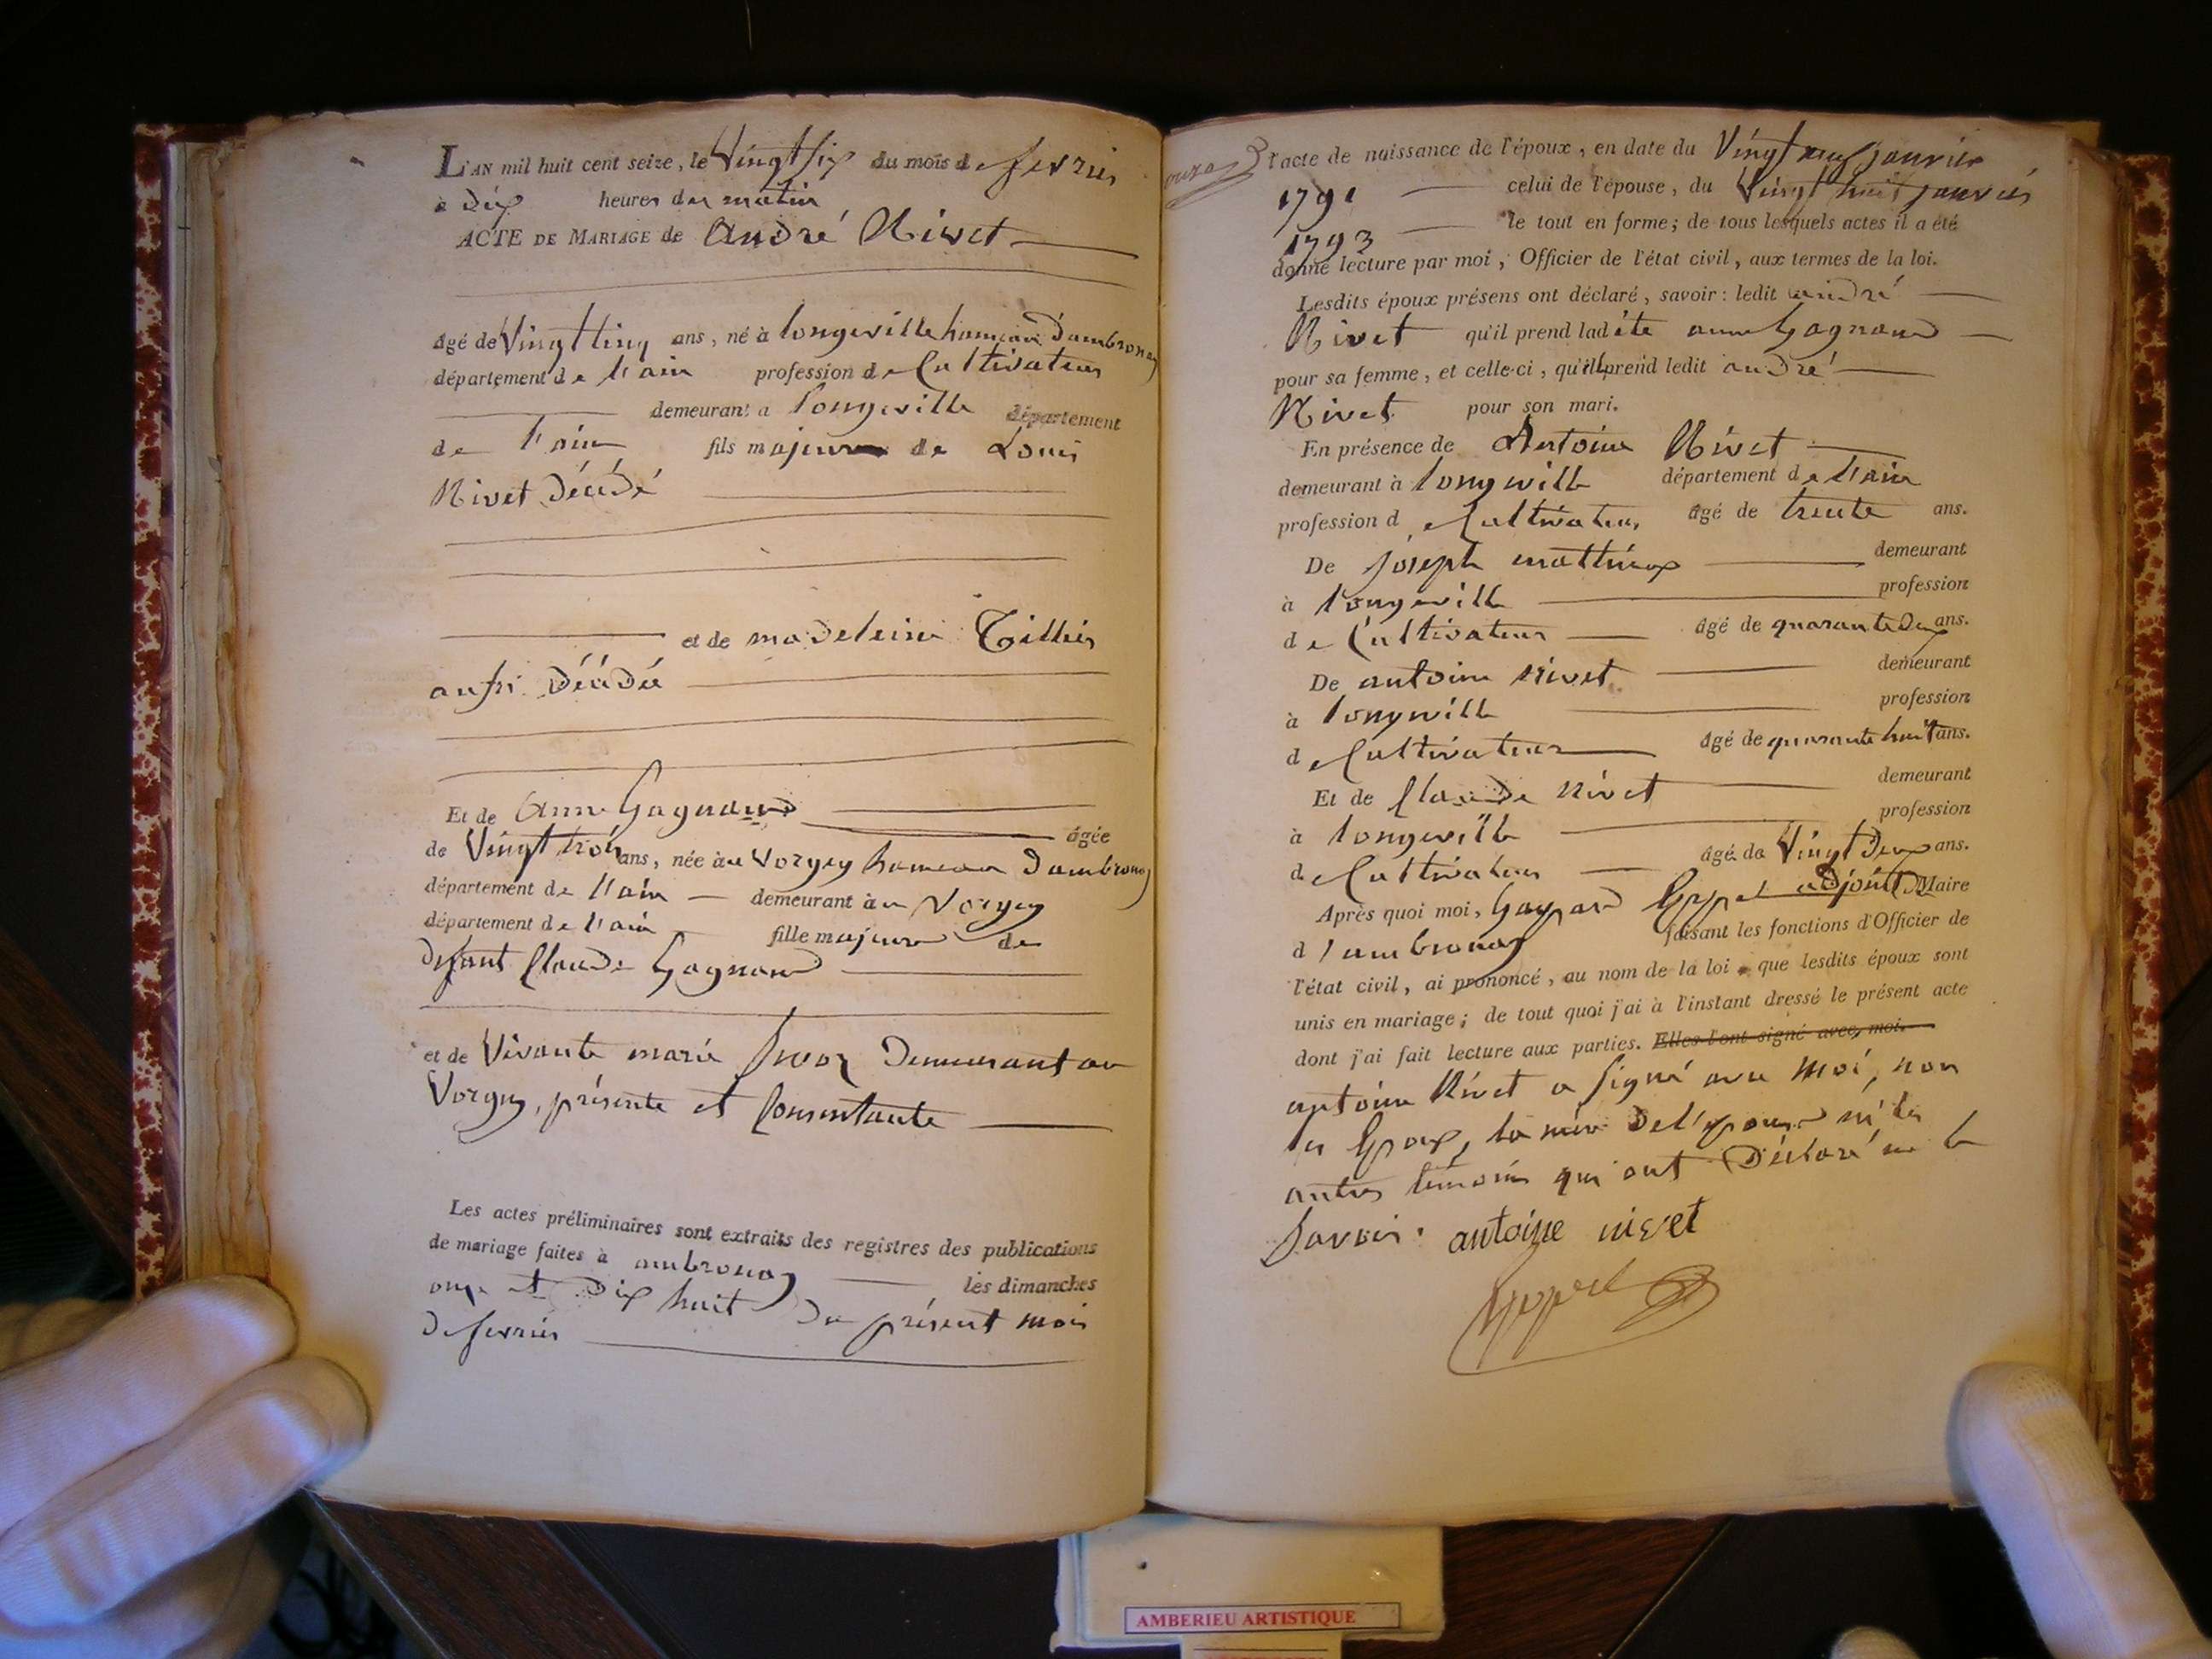 L'AN mil huit cent seize, le Vingt six du mois de fevrier
à dix heures du matin
ACTE DE MARIAGE de André Nivet
âgé de Vingt cinq ans, né à longeville hameau d'ambronay
département de l'ain profession de Cultivateur
demeurant à longeville département
de l'ain fils majeur de Louis
Nivet décédé
et de madeleine Tillier
aussi décédée
Et de Anne Gagnaud
âgée
de Vingt trois ans, née au Vorgey hameau d'ambronay
département de l'ain demeurant au Vorgey
département de l'ain fille majeure de
défunt Claude Gagnaud
et de Vivante marie demeurant au
Vorgey, présente et Consentante
Les actes préliminaires sont extraits des registres des publications
de mariage faites à ambronay les dimanches
onze et dix huit du présent mois
de fevrier
l'acte de naissance de l'époux, en date du Vingt neuf janvier
1791 celui de l'épouse, du Vingt huit janvier
1793 le tout en forme; de tous lesquels actes il a été
donné lecture par moi, Officier de l'état civil, aux termes de la loi.
Lesdits époux présens ont déclaré, savoir: ledit andré
Nivet qu'il prend ladite anne Gagnaud
pour sa femme, et celle-ci, qu'elle prend ledit andré
Nivet pour son mari.
En présence de Antoine Nivet
demeurant à longeville département de l'ain
profession de Cultivateur âgé de trente ans.
De joseph matthieux demeurant
à longeville profession
de Cultivateur âgé de quarante deux ans.
De antoine nivet demeurant
à longeville profession
de Cultivateur âgé de quarante huit ans.
Et de Claude nivet demeurant
à longeville profession
de Cultivateur âgé de Vingt deux ans.
Après quoi moi, Gaspard adjoint Maire
d'ambronay faisant les fonctions d'Officier de
l'état civil, ai prononcé, au nom de la loi, que lesdits époux sont
unis en mariage; de tout quoi j'ai à l'instant dressé le présent acte
dont j'ai fait lecture aux parties. Elles l'ont signé avec moi.
antoine Nivet a signé avec moi, non
les Epoux, la mère de l'epouse ni les
autres temoins qui ont déclaré ne le
savoir. antoine nivet
AMBERIEU ARTISTIQUE